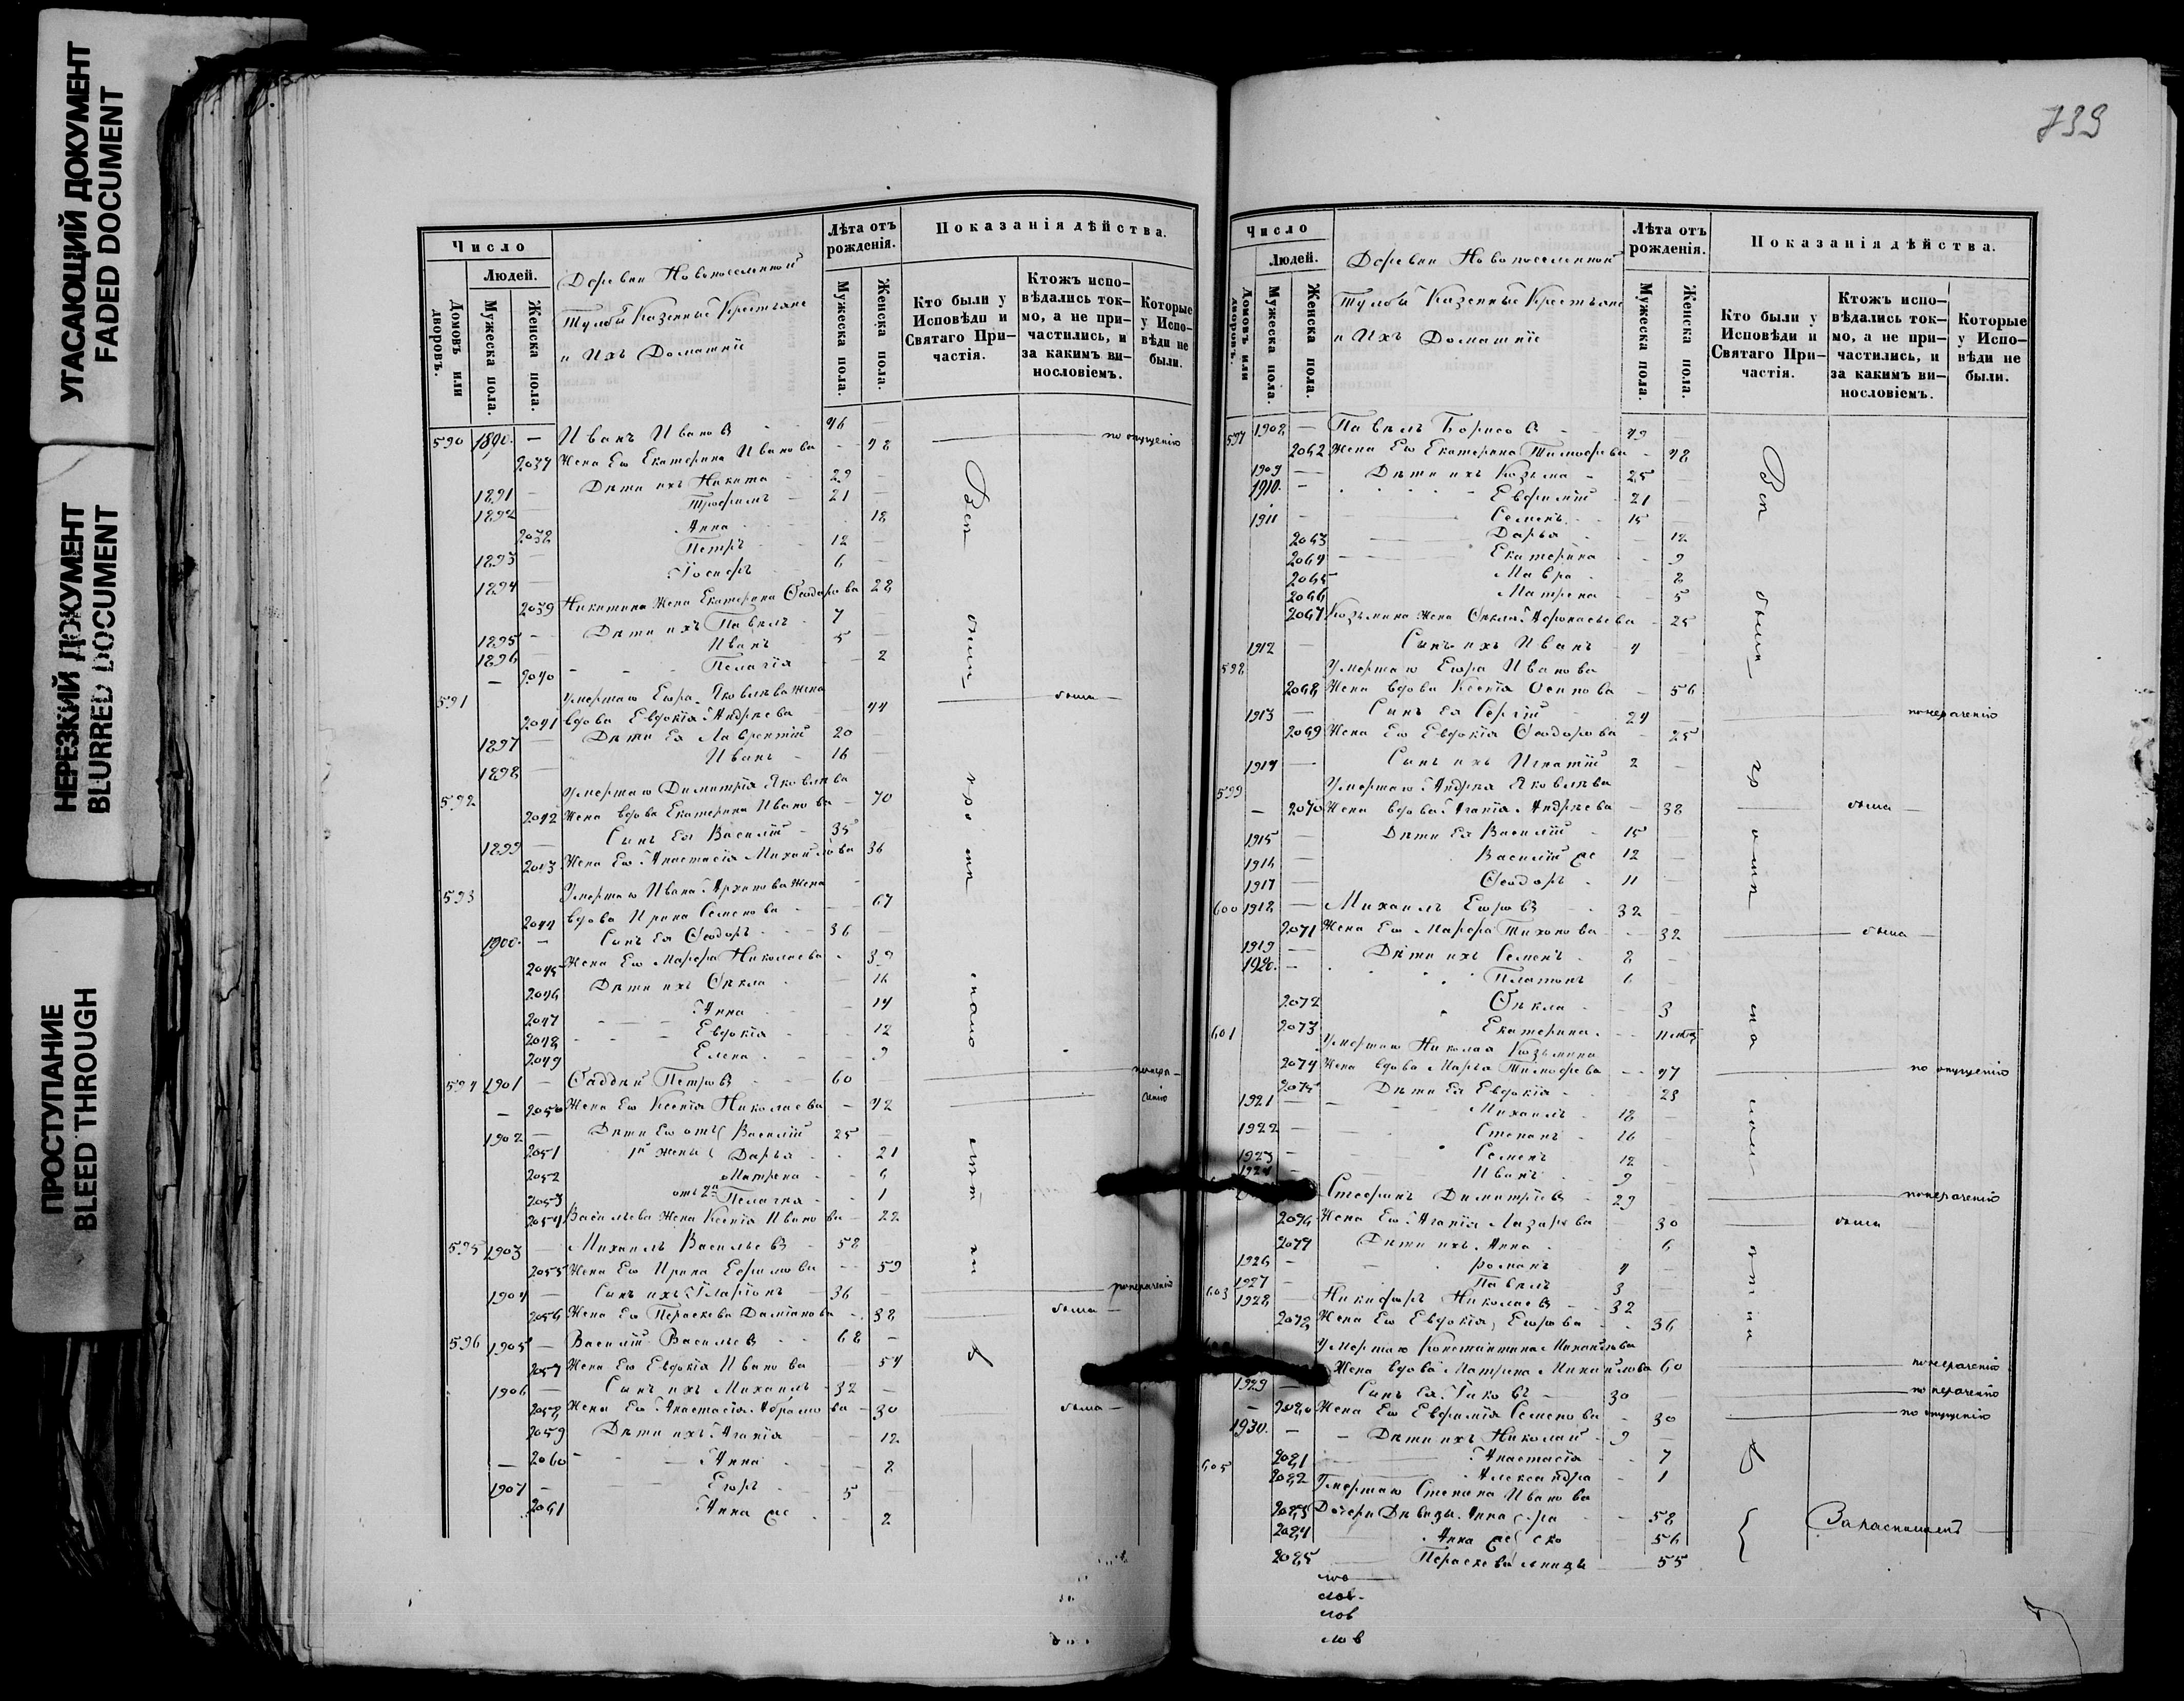 УГАСАЮЩИЙ ДОКУМЕНТ
FADED DOCUMENT
НЕРЕЗКИЙ ДОКУМЕНТ
BLURRED DOCUMENT
ПРОСТУПАНИЕ
BLEED THROUGH
Число
Людей.
Домовъ или дворовъ.
Мужеска пола.
Женска пола.
Деревни Новопоселенной
Тулбы Казенные Крестьяне
и Ихъ Домашніе
Лѣта отъ рожденія.
Мужеска пола.
Женска пола.
Показанія дѣйства.
Кто были у Исповѣди и Святаго Причастія.
Ктожъ исповѣдались токмо, а не причастились, и за какимъ винословіемъ.
Которые у Исповѣди не были.
590 1890. — Иванъ Ивановъ 46 по опущенію
2037 Жена Его Екатерина Иванова 48
1891 — Дѣти ихъ Никита 29
1892 Трофимъ 21
2038 Анна 18
1893 — Петръ 12
1894 — Іосифъ 6
2039 Никитина Жена Екатерина Ѳеодорова 28
1895 — Дѣти ихъ Павелъ 7
1896 — Иванъ 5
— 2040 Пелагія 2
591 Умершаго Егора Яковлева жена
2041 вдова Евдокія Андреева 44 была
1897 — Дѣти Ея Лаврентій 20
1898 — Иванъ 16
592 Умершаго Димитрія Яковлева
2042 Жена вдова Екатерина Иванова 70
1899 — Сынъ Ея Василій 35
2043 Жена Его Анастасія Михайлова 36
593 Умершаго Ивана Архипова Жена
2044 вдова Ирина Семенова 67
1900. — Сынъ Ея Ѳеодоръ 36
2045 Жена Его Марфа Николаева 39
2046 Дѣти ихъ Ѳекла 16
2047 Анна 14
2048 Евдокія 12
2049 Елена 9
594 1901 — Ѳаддѣй Петровъ 60 понера-
— 2050 Жена Его Ксенія Николаева 42 ченію
1902 — Дѣти Его отъ Василій 25
2051 1й жены Дарья 21
2052 Матрена 6
2053 отъ 2й Пелагія 1
2054 Васильева Жена Ксенія Иванова 22
595 1903 — Михаилъ Васильевъ 58
2055 Жена Его Ирина Ефимова 59
1904 — Сынъ ихъ Иларіонъ 36 понераченію
2056 Жена Его Параскева Даміанова 38 была
596 1905 — Василій Васильевъ 68
2057 Жена Его Евдокія Иванова 54
1906 — Сынъ ихъ Михаилъ 32
2058 Жена Его Анастасія Абрамова 30 была
2059 Дѣти ихъ Агапія 12
— 2060 Анна 8
1907 — Егоръ 5
2061 Анна 2
Всѣ
были
739
Число
Людей.
Домовъ или дворовъ.
Мужеска пола.
Женска пола.
Деревни Новопоселенной
Тулбы Казенные Крестьяне
и Ихъ Домашніе
Лѣта отъ рожденія.
Мужеска пола.
Женска пола.
Показанія дѣйства.
Кто были у Исповѣди и Святаго Причастія.
Ктожъ исповѣдались токмо, а не причастились, и за какимъ винословіемъ.
Которые у Исповѣди не были.
597 1908 — Павелъ Борисовъ 49
2062 Жена Его Екатерина Тимофеева 48
1909 — Дѣти ихъ Козьма 25
1910. — Евфимій 21
1911 — Семенъ 15
2063 Дарья 12
2064 Екатерина 9
2065 Мавра 8
2066 Матрена 5
2067 Козьмина Жена Ѳекла Афонасьева 25
1912 — Сынъ ихъ Иванъ 4
598 Умершаго Егора Иванова
2068 Жена вдова Ксенія Осипова 56
1913 — Сынъ Ея Сергій 24 понераченію
2069 Жена Его Евдокія Ѳеодорова 25
1914 — Сынъ ихъ Игнатій 2
599 Умершаго Андрея Яковлева
— 2070 Жена вдова Агапія Андреева 38 была
1915 — Дѣти Ея Василій 15
1916 — Василій 12
1917 — Ѳеодоръ 11
600 1918 — Михаилъ Егоровъ 32
2071 Жена Его Марфа Тихонова 32 была
1919 — Дѣти ихъ Семенъ 8
1920. — Платонъ 6
2072 Ѳекла 3
2073 Екатерина
601 Умершаго Николая Козьмина
2074 Жена вдова Марья Тимофеева 47 по опущенію
2075 Дѣти Ея Евдокія 23
1921 — Михаилъ 18
1922 — Степанъ 16
1923 — Семенъ 12
1924 — Иванъ 9
Стефанъ Димитріевъ 29 понераченію
2076 Жена Его Агапія Лазарева 30 была
2077 Дѣти ихъ Анна 6
1926 — Романъ 4
1927 — Павелъ 3
603 1928 — Никифоръ Николаевъ 32
2078 Жена Его Евдокія Егорова 36
Умершаго Константина Михайлова
Жена вдова Матрена Михайлова 60 понераченію
1929 — Сынъ Ея Іаковъ 30 по нераченію
— 2080 Жена Его Евфимія Семенова 30 по опущенію
1930. — Дѣти ихъ Николай 9
2081 Анастасія 7
605 2082 Александра 1
Умершаго Степана Иванова
2083 Дочери Дѣвицы Анна 58
2084 Анна 56
2085 Параскева 55
За раскольн.
Всѣ
были